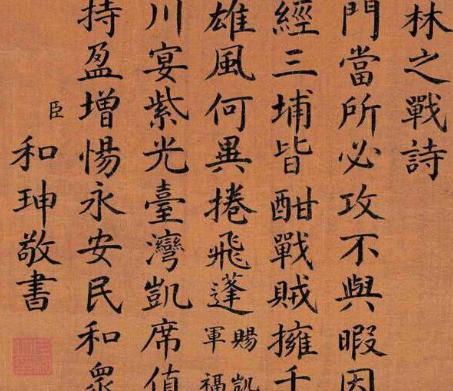 林之戰詩
門當所必攻不與暇因
經三埔皆酣戰賊擁千
雄風何異捲飛蓬
賜凱
軍福
川宴紫光臺灣凱席值
持盈增惕永安民和衆
臣和珅敬書